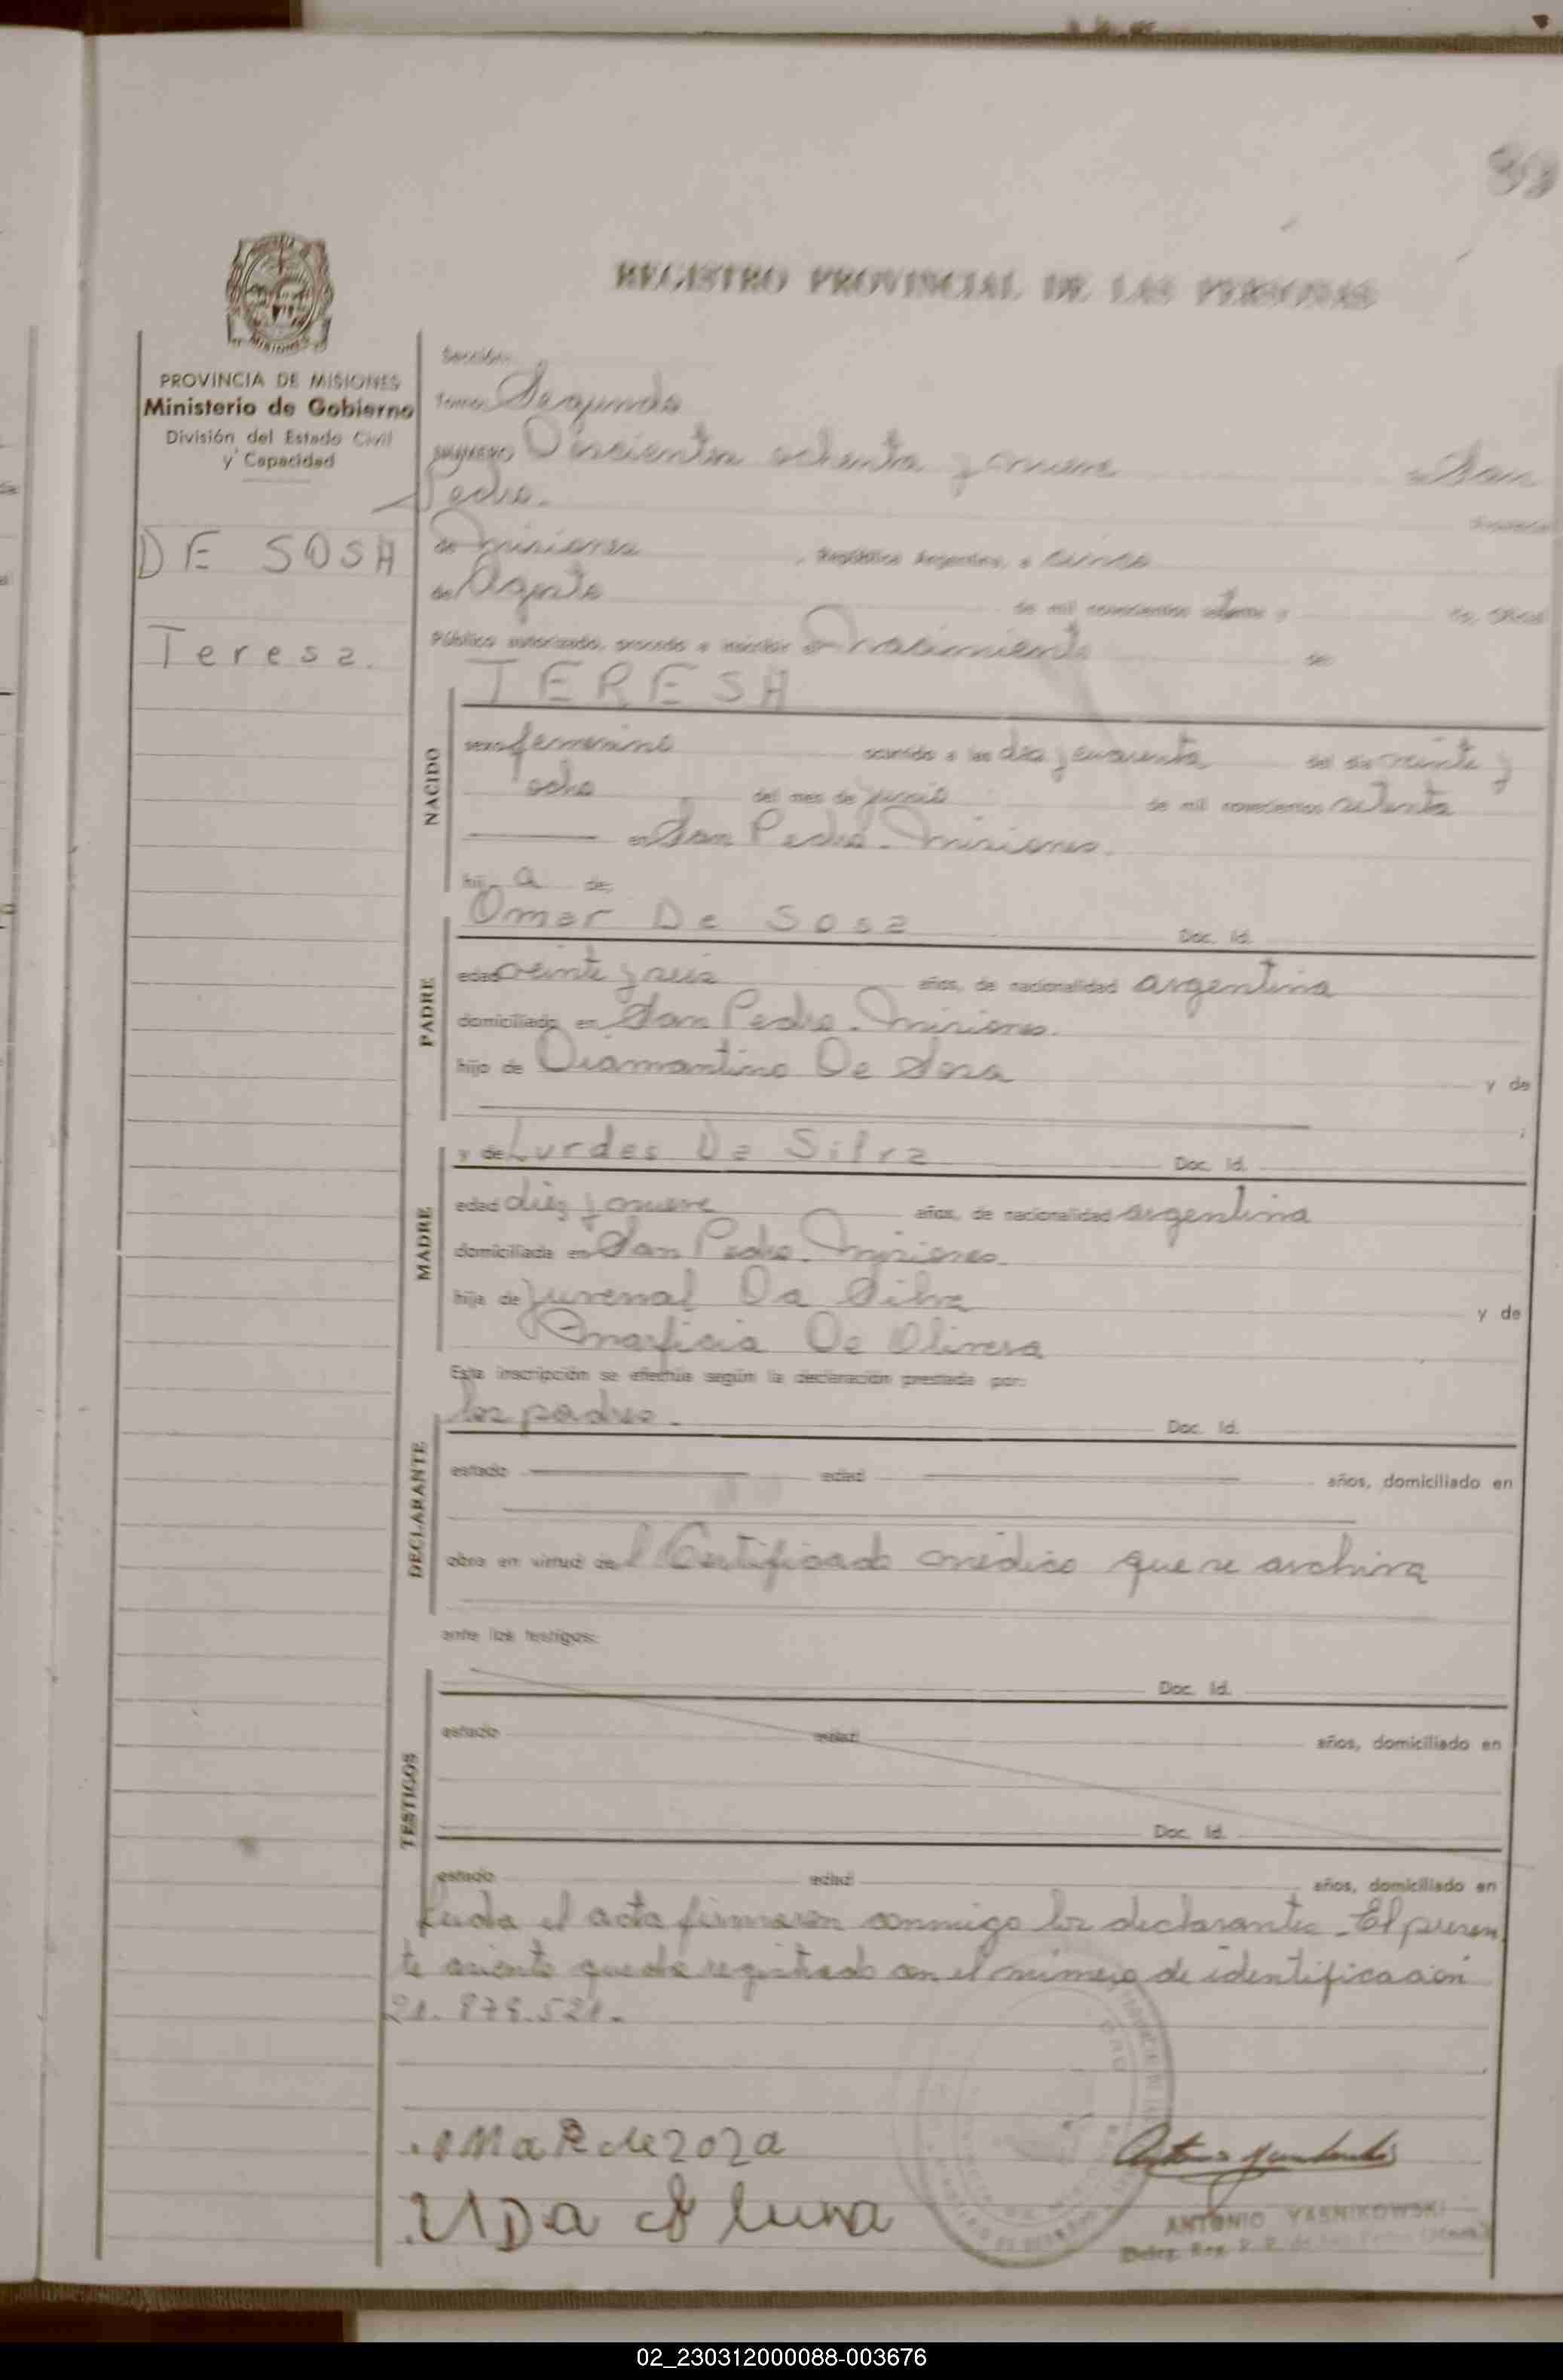 REGISTRO PROVINCIAL DE LAS PERSONAS
PROVINCIA DE MISIONES
Ministerio de Gobierno
División del Estado Civil
y Capacidad
DE SOSA
Teresa.
Sección
Tomo Segundo
NUMERO Doscientos ochenta y nueve en San
Pedro.
de Misiones , República Argentina, a cinco
de Agosto de mil novecientos setenta y
Público autorizado, procedo a inscribir el nacimiento de
TERESA
NACIDO
sexo femenino ocurrido a las diez y cuarenta del día veinte y
ocho del mes de junio de mil novecientos setenta
en San Pedro - Misiones.
hij a de
PADRE
Omar De Sosa Doc. Id.
edad veinte y seis años, de nacionalidad argentina
domiciliado en San Pedro - Misiones.
hijo de Diamantino De Sosa y de
MADRE
y de Lurdes Da Silva Doc. Id.
edad diez y nueve años, de nacionalidad argentina
domiciliada en San Pedro - Misiones.
hija de Juvenal Da Silva y de
De Olivera
Esta inscripción se efectúa según la declaración prestada por:
DECLARANTE
los padres. Doc. Id.
estado edad años, domiciliado en
obra en virtud de l Certificado médico que se archiva
ante los testigos:
TESTIGOS
Doc. Id.
estado edad años, domiciliado en
Doc. Id.
estado edad años, domiciliado en
Leida el acta firmaron conmigo los declarantes - El presen
te asiento queda registrado con el número de identificación
OMaR de
ANTONIO YASNIKOWSKI
02_230312000088-003676